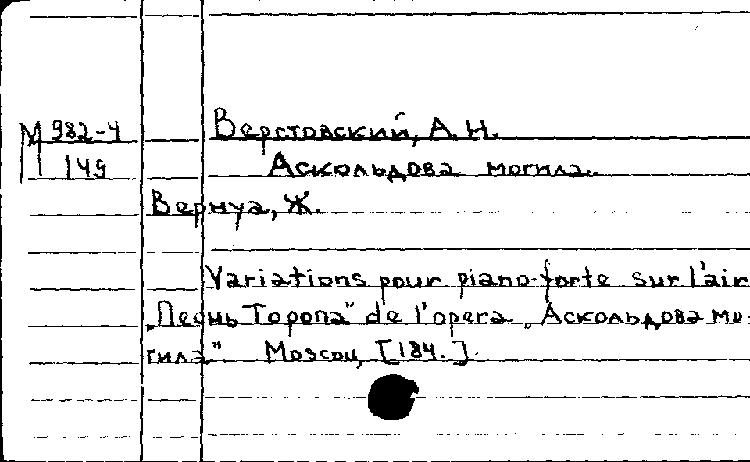 М 982-4 Верстовский, А. Н.
149 Аскольдова могила.
Вернуа, Ж.
Variations pour piano-forte sur l'air
„Песнь Торопа" de l'opera „Аскольдова мо-
гила". Moscou, [184.]